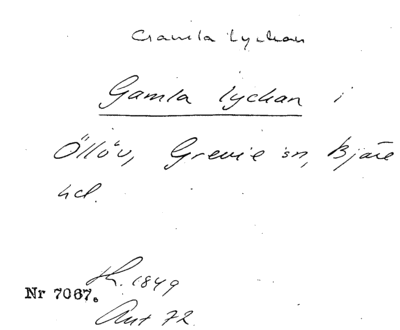 Gamla Lyckan
Gamla lyckan i
Öllöv, Grevie sn, Bjäre
hd.
Nr 7067. h. 1849
Ant 72